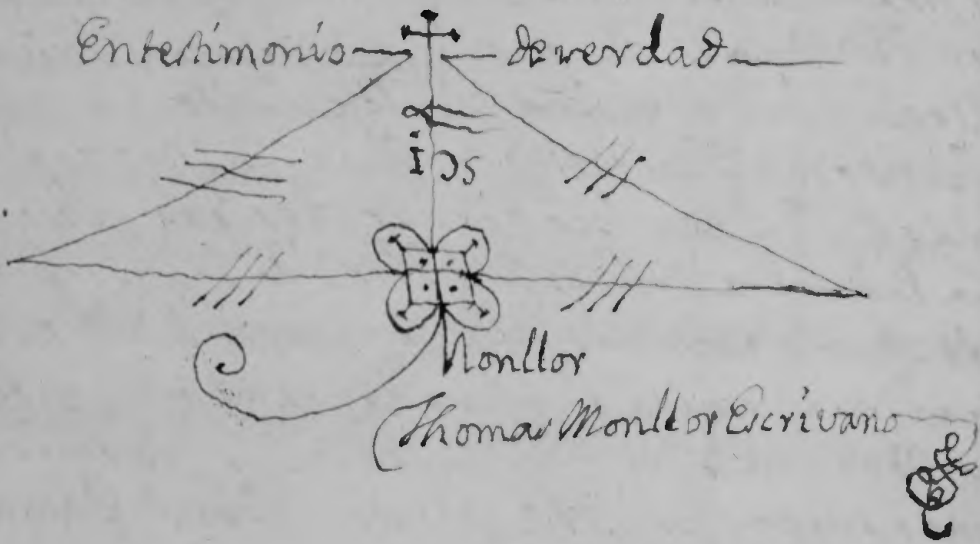 En testimonio de verdad
IDS
Monllor
Thomas Monllor Escrivano